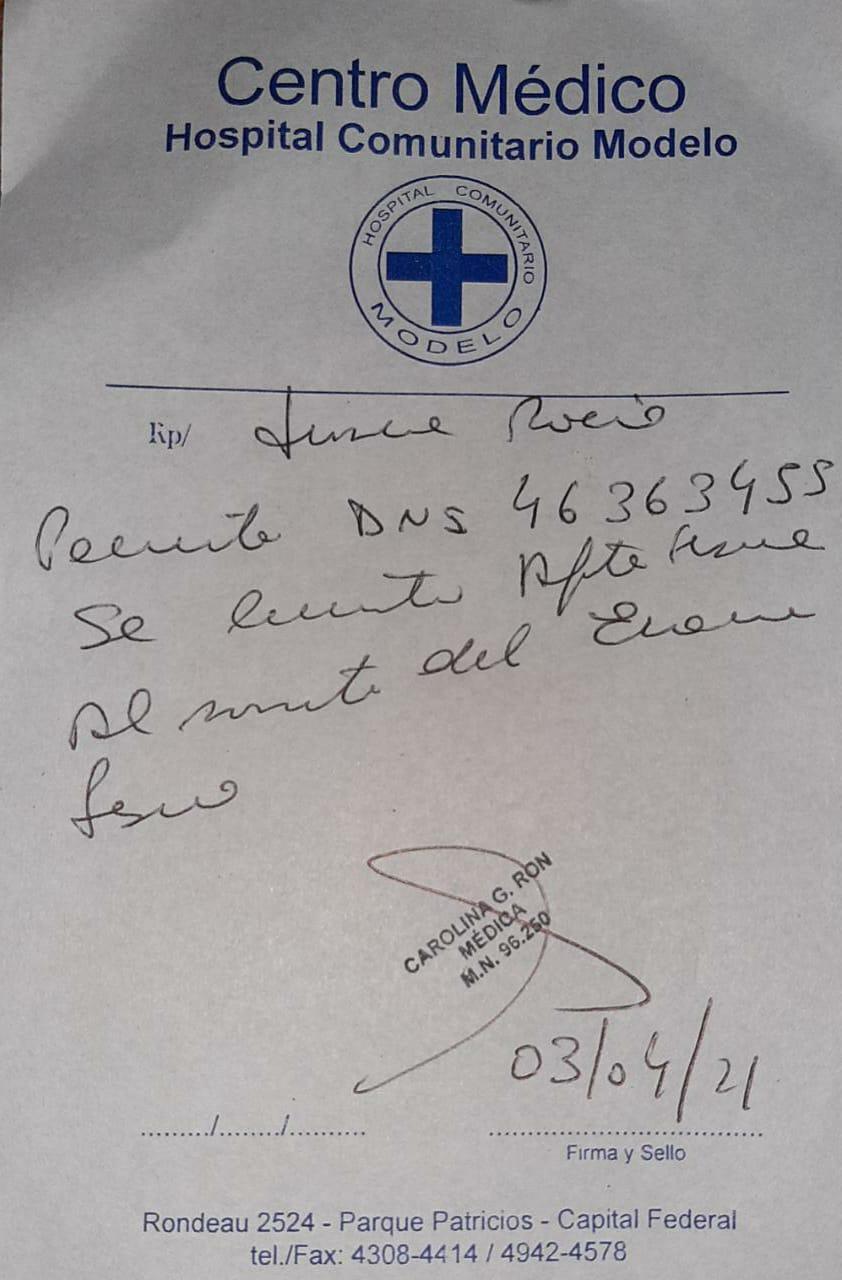 Centro Médico
Hospital Comunitario Modelo
HOSPITAL COMUNITARIO
MODELO
Rp/ Rocio
Paciente DNI 46363455
Se encuentra Apto
Al momento del Examen
Fisico
CAROLINA G. RON
MÉDICA
M.N. 96.250
03/04/21
........./......../...........
Firma y Sello
Rondeau 2524 - Parque Patricios - Capital Federal
tel./Fax: 4308-4414 / 4942-4578